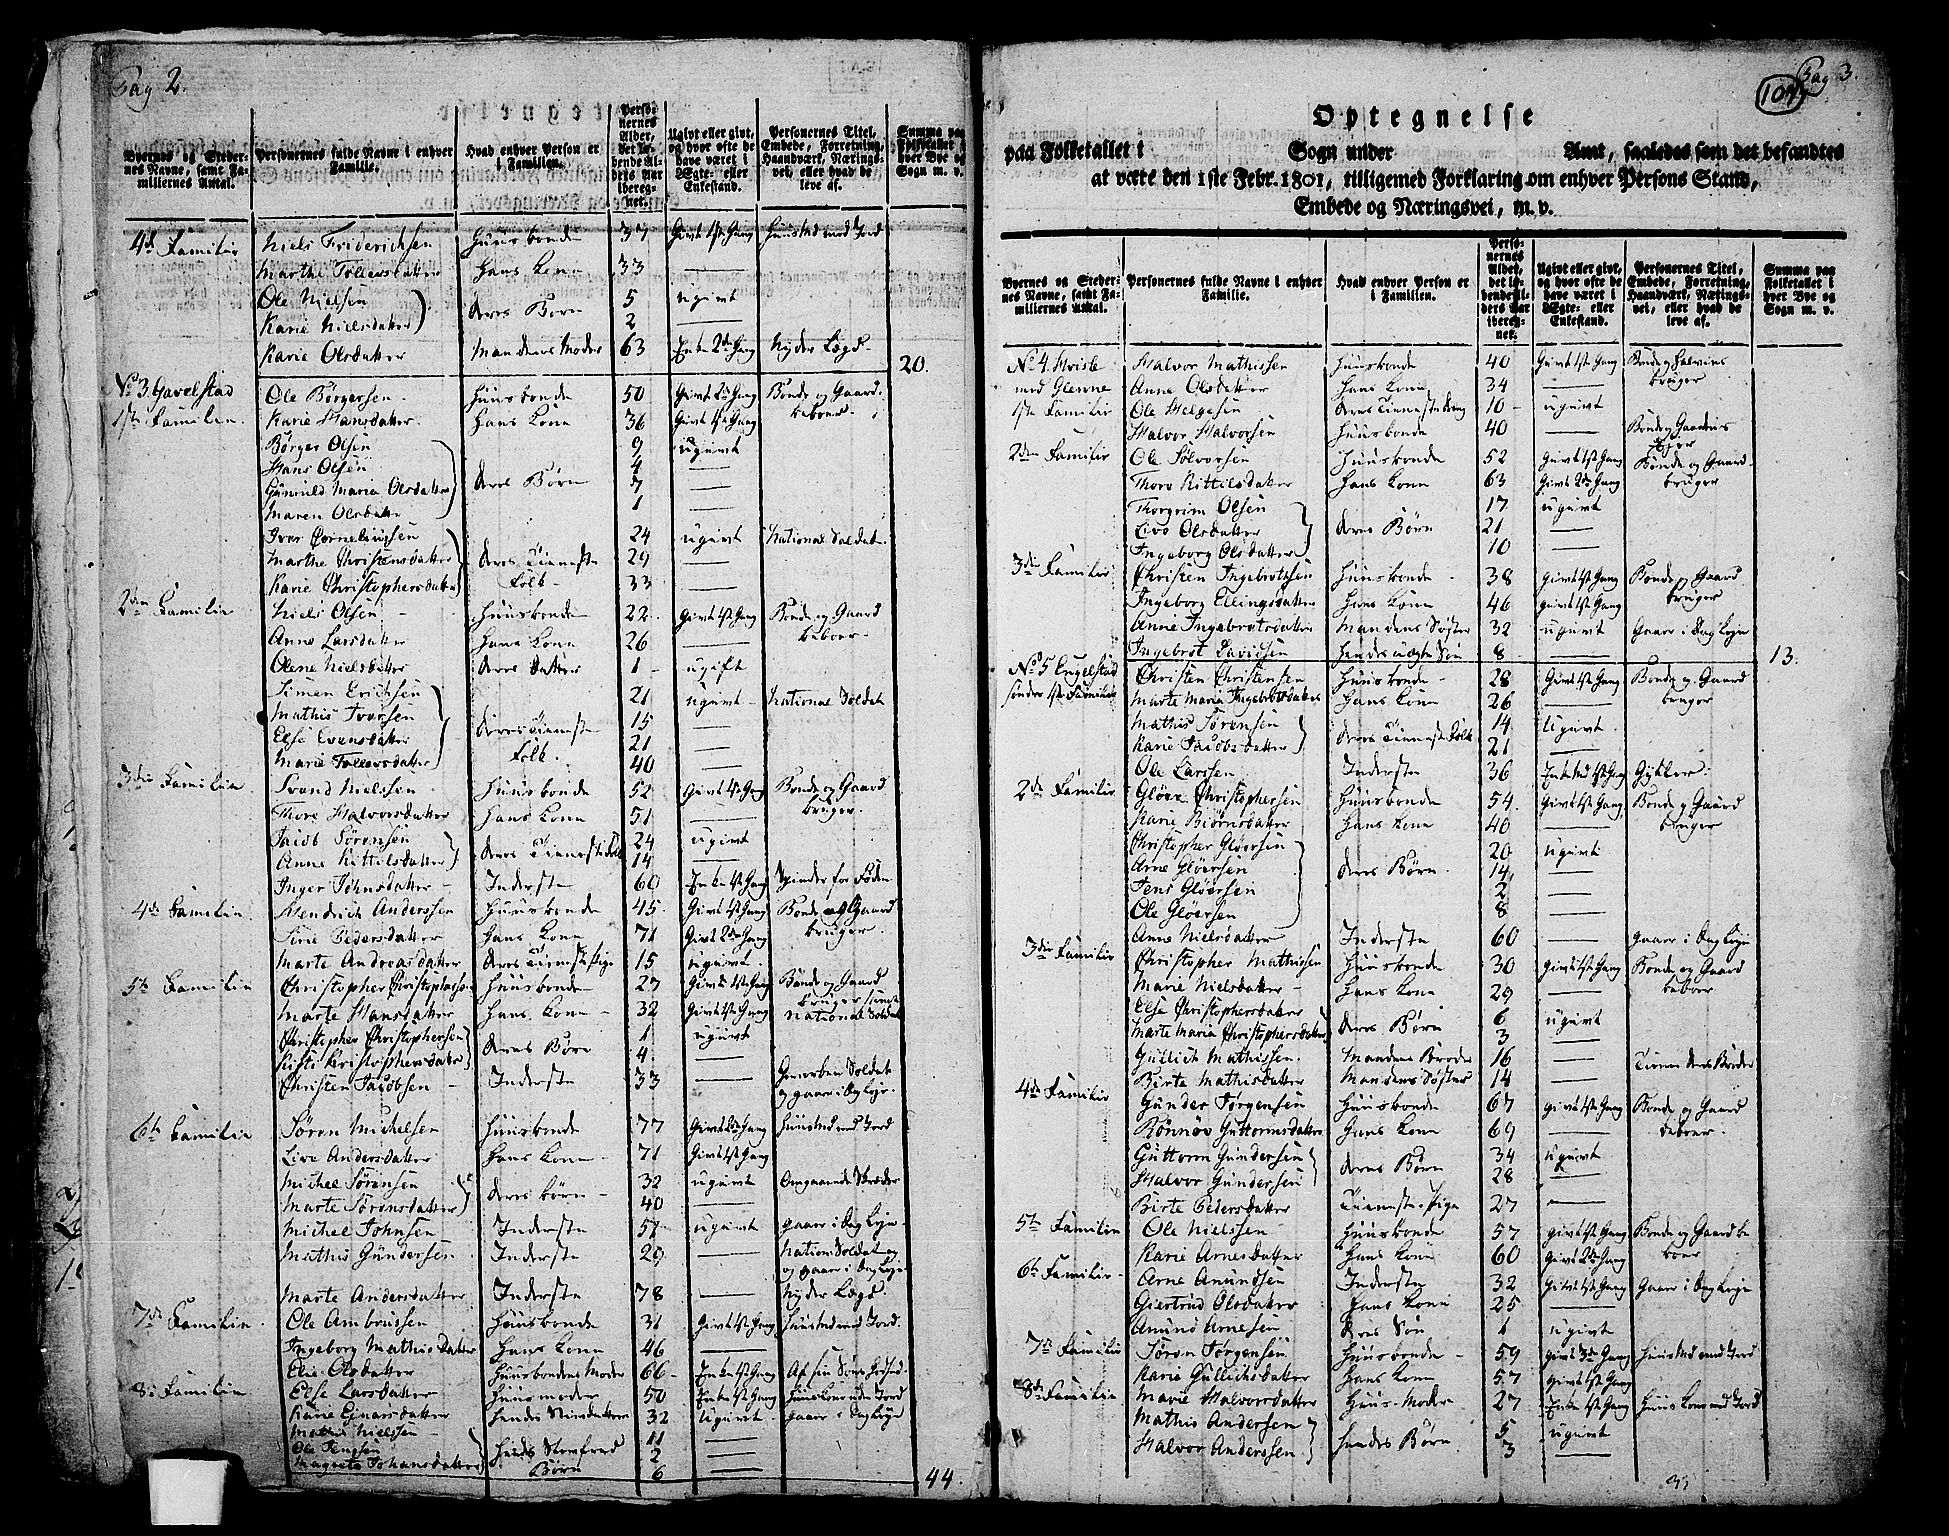 Pag 2.
Byernes og Stedernes Navne, samt Familiernes Antal.
Personernes fulde Navne i enhver Familie.
Hvad enhver Person er i Familien.
Personernes Alder, det løbende Alders Aar iberegnet.
Ugivt eller givt, og hvor ofte de have været i Ægte- eller Enkestand.
Personernes Titel, Embede, Forretning, Haandværk, Næringsvei, eller hvad de leve af.
Summa paa Folketallet i hver Bye og Sogn m. v.
4de Familie Niels Friderichsen Huusbonde 37 Givt 1ste Gang Huusmd med Jord
Marthe Tollersdatter Hans Kone 33 —
Ole Nielsen 5 ugivt
deres Børn
Karie Nielsdatter 2 —
Karie Olsdatter Mandens Moder 63 Enke 2den Gang Nyder Lægd 20.
No 3 Gavelstad Ole Børgersen Huusbonde 50 Givt 2den Gang Bonde og Gaard
1ste Familie Karie Hansdatter Hans Kone 36 Givt 1ste Gang beboer
Børger Olsen 9 ugivt
Hans Olsen 4 —
Gunnild Maria Olsdatter deres Børn 7 —
Maren Olsdatter 1 —
Iver Corneliussen 24 ugivt National Soldat
Marthe Christensdatter deres Tieneste 29 —
Karie Christophersdatter Folk 33 —
2den Familie Niels Olsen Huusbonde 22 Givt 1ste Gang Bonde og Gaard
Anne Larsdatter Hans Kone 26 — beboer
Olene Nielsdatter deres Datter 1 ugift
Simen Erichsen 21 ugivt National Soldat
Mathis Iversen deres Tieneste 15 —
Else Evensdatter Folk 21 —
Marie Tollersdatter 40 —
3die Familie Svend Nielsen Huusbonde 52 Givt 1ste Gang Bonde og Gaard
Thore Halvorsdatter Hans Kone 51 — bruger
Jacob Sørensen 24 ugivt
deres Tienestefolk
Anne Kittilsdatter 14 —
Inger Johnsdatter Inderste 60 Enke 1ste Gang Spinder for Føden
4de Familie Hendrich Anderssen Huusbonde 45 Givt 1ste Gang Bonde og Gaard
Sirie Pedersdatter Hans Kone 71 Givt 2den Gang bruger
Marte Andreasdatter deres Tienestepige 15 ugivt
5te Familie Christopher Christophersen Huusbonde 27 Givt 1ste Gang Bonde og Gaard
bruger samt
Marte Hansdatter Hans Kone 32 Givt 1ste Gang National Soldat
Christopher Christophersen 1 ugivt
deres Børn
Kisti Kristophersdatter 4 —
Christen Jacobsen Inderste 33 — Gevorben Soldat
og gaaer i Dagleje
6te Familie Søren Michelsen Huusbonde 77 Givt 2den Gang Huusmd med Jord
Live Andersdatter Hans Kone 71 Givt 1ste Gang
Michel Sørensen 32 ugivt Omgaaende Skræder
deres børn
Marte Sørensdatter 40 —
Michel Johnsen Inderste 51 ugivt gaaer i Dagleje
Mathis Gundersen Inderste 29 — Nation: Soldat og
og gaaer i Dagleje
Marte Andersdatter Inderste 78 — Nyder Lægd
7de Familie Ole Ambrusen Huusbonde 31 Givt 1ste Gang Huusmd med Jord
Ingeborg Mathisdatter Hans Kone 46 —
Elie Olsdatter Huusbondens Moder 66 Enke 1ste Gang
8de Familie Else Larsdatter Huusmoder 50 Enke 1ste Gang Huuskone med Jord
Karie Einarsdatter hendes Steivdatter 32 Ugivt gaaer i Dagleje
Mathis Nielsen 11 —
Ole Jensen 2 —
Børn
Magrete Johansdatter 6 —
44.
Pag 3.
104
Optegnelse
paa Folketallet i Sogn under Amt, saaledes som det befandtes
at være den 1ste Febr. 1801, tilligemed Forklaring om enhver Persons Stand,
Embede og Næringsvei, m. v.
Byernes og Stedernes Navne, samt Familiernes Antal.
Personernes fulde Navne i enhver Familie.
Hvad enhver Person er i Familien.
Personernes Alder, det løbende Alders Aar iberegnet.
Ugivt eller givt, og hvor ofte de have været i Ægte- eller Enkestand.
Personernes Titel, Embede, Forretning, Haandværk, Næringsvei, eller hvad de leve af.
Summa paa Folketallet i hver Bye og Sogn m. v.
No 4. Hvisle Halvor Mathissen Huusbonde 40 Givt 1ste Gang Bonde og
med Glenne Anne Olsdatter Hans Kone 34 — bruger
1ste Familie Ole Helgesen deres Tienestedreng 10 ugivt
Halvor Halvorsen Huusbonde 40 — Bonde og Gaardens
2den Familie Ole Sølvorsen Huusbonde 52 Givt 1ste Gang Bonde og Gaard
Thore Kittilsdatter Hans Kone 63 Givt 2den Gang bruger
Thorgrim Olsen 17 ugivt
Live Olsdatter deres Børn 21 —
Ingeborg Olsdatter 10 —
3die Familie Christen Ingebrethsen Huusbonde 38 Givt 1ste Gang Bonde og Gaard
Ingeborg Ellingsdatter Hans Kone 46 Givt 1ste Gang bruger
Anne Ingebrethsdatter Mandens Søster 32 ugivt Gaaer i Dagleje
Ingebrot Davidsen hendes uægte Søn 8 — 13.
No 5 Engelstad Christen Christensen Huusbonde 28 Givt 1ste Gang Bonde og Gaard
søndre 1ste Familie Marte Maria Ingebretsdatter Hans Kone 26 — bruger
Mathis Sørensen 14 Ugivt
deres Tieneste Folk
Karie Jacobsdatter 21 —
Ole Larssen Inderste 36 Enkemd 1ste Gang
2den Familie Gløer Christophersen Huusbonde 54 Givt 1ste Gang Bonde og Gaard
Karie Biørnsdatter Hans Kone 40 — bruger
Christopher Gløersen 20 ugivt
Arne Gløersen deres Børn 14 —
Jens Gløersen 2 —
Ole Gløersen 8 —
Anne Nielsdatter Inderste 60 — gaaer i Dagleje
3die Familie Christopher Mathissen Huusbonde 30 Givt 1ste Gang Bonde og Gaard
Marie Nielsdatter Hans Kone 29 — beboer
Else Christophersdatter 6 ugivt
deres Børn
Marte Maria Christophersdatter 3 —
Gullich Mathissen Mandens Broder 16 — Tiener deres Broder
Birte Mathisdatter Mandens Søster 14 —
4de Familie Gunder Jørgensen Huusbonde 67 Givt 1ste Gang Bonde og Gaard
Rønnøv Guttormsdatter Hans Kone 69 — beboer
Guttorm Gundersen 34 Ugivt
deres Børn
Halvor Gundersen 28 —
Birte Pedersdatter Tieneste Pige 27 —
5te Familie Ole Nielssen Huusbonde 57 Givt 1ste Gang Bonde og Gaard be
Karie Arnesdatter Hans Kone 60 Givt 2den Gang boer
6te Familie Arne Amundsen Inderste 32 Givt 1ste Gang Gaaer i Dagleje
Giertrud Olsdatter Hans Kone 25 —
Amund Arnesen deres Søn 1 ugivt
7de Familie Søren Jørgensen Huusbonde 59 Givt 3de Gang Huusmd med Jord
Karie Gullichsdatter Hans Kone 57 Givt 1ste Gang
8de Familie Marie Halvorsdatter Huus-Moder 27 Enke 1ste Gang Huus Kone med Jord
Mathis Andersen 5 ugivt
hendes Børn
Halvor Anderssen 3 —
33